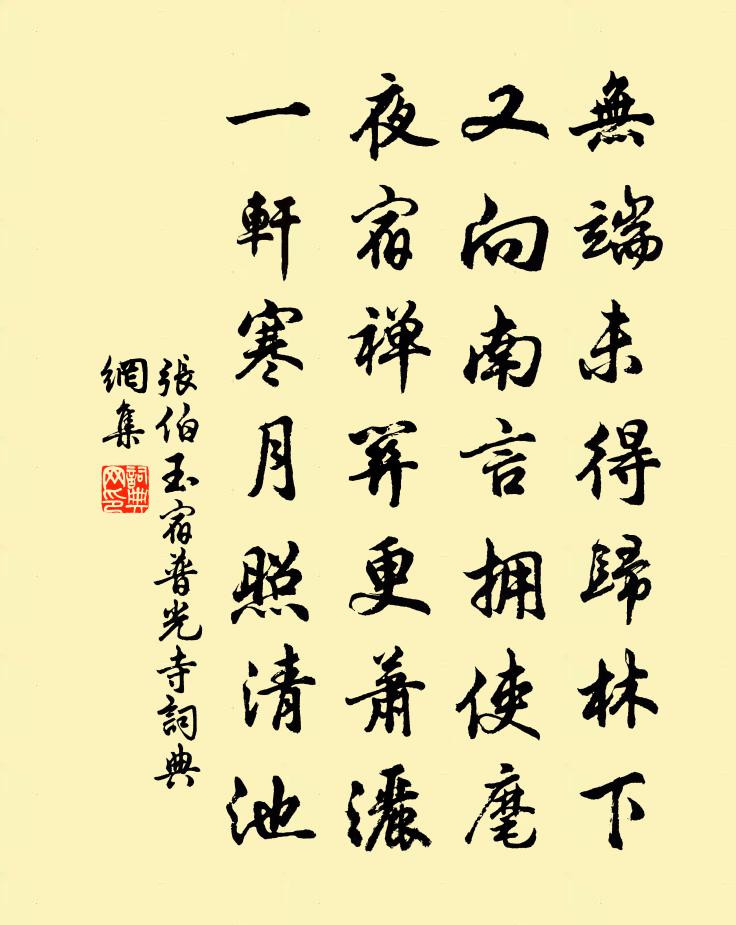 無端未得歸林下
又向南言拥使麾
夜宿禅關更蕭灑
一軒寒月照清池
張伯玉宿普光寺詞典
網集
詞典
网印